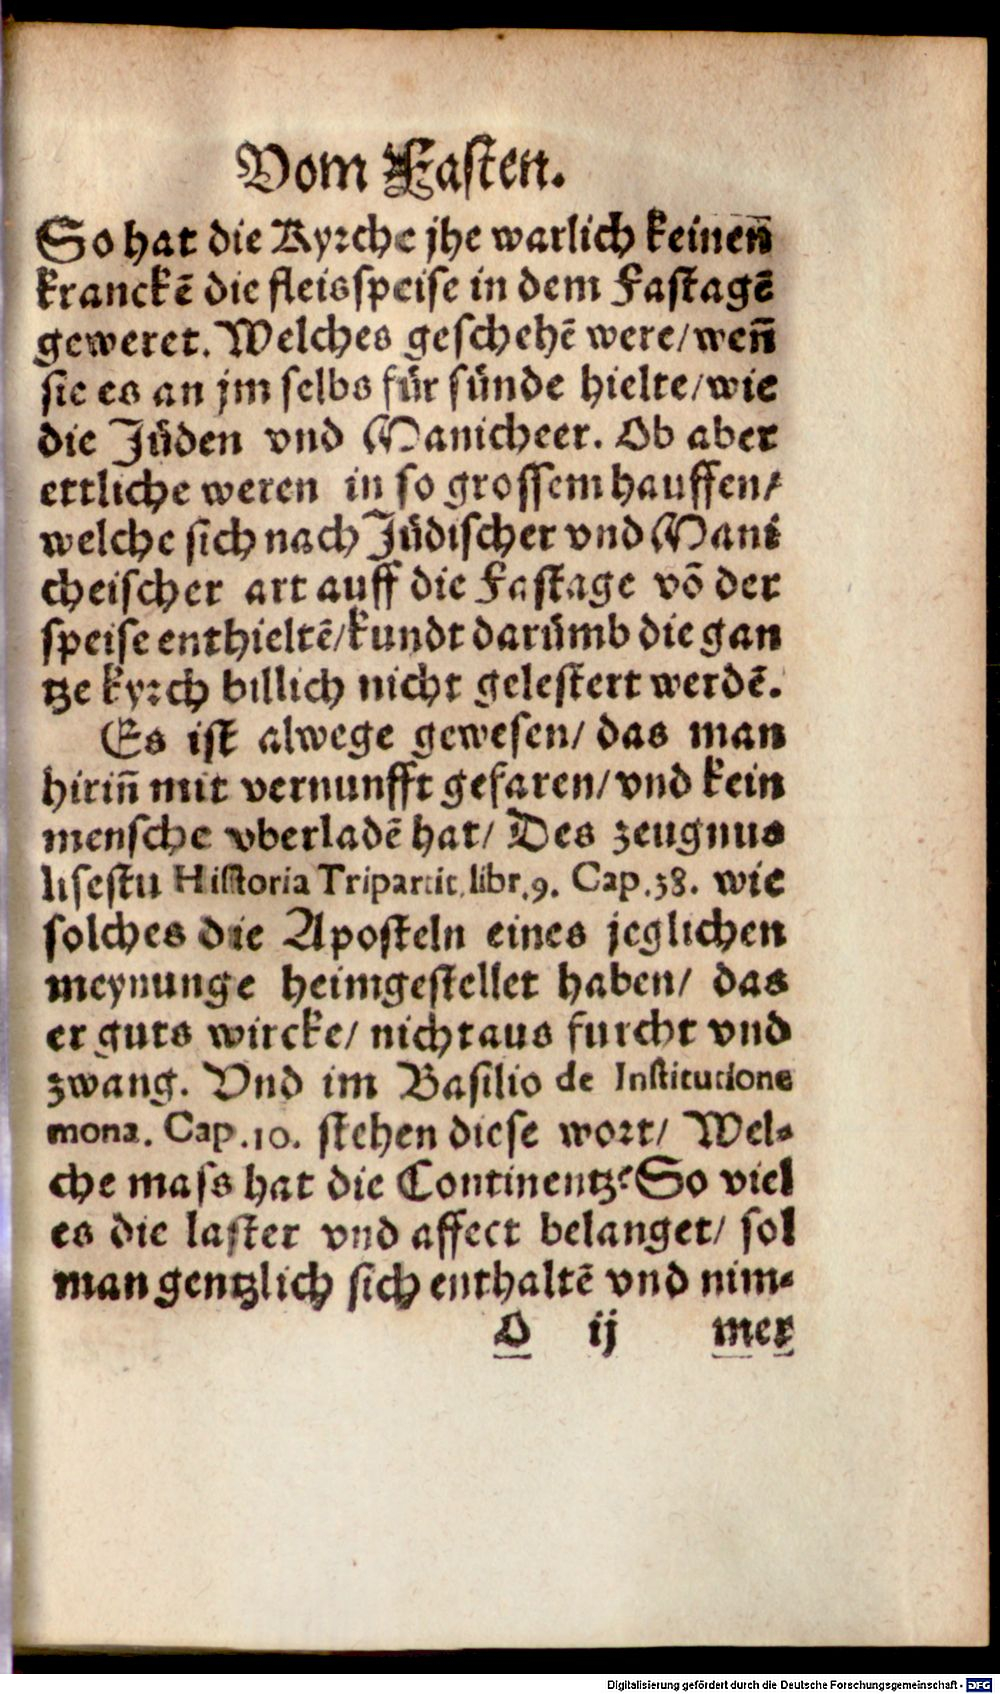 Vom Fasten.
So hat die Kyrche jhe warlich keinenn̄
kranckē die fleisspeise in dem Fastagē
geweret. Welches geschehē were/wen̄
sie es an jm selbs für sünde hielte/wie
die Jüden vnd Manicheer. Ob aber
ettliche weren in so grossem hauffen/
welche sich nach Jüdischer vnd Mani
cheischer art auff die Fastage vō der
speise enthieltē/kundt darümb die gan
tze kyrch billich nicht gelestert werdē.
Es ist alwege gewesen/ das man
hirin̄ mit vernunfft gefaren/vnd kein
mensche vberladē hat/ Des zeugnus
lisestu Historia Tripartit. libr.9. Cap.38. wie
solches die Aposteln eines jeglichen
meynunge heimgestellet haben/ das
er guts wircke/ nicht aus furcht vnd
zwang. Vnd im Basilio de Institutione
mona. Cap.10. stehen diese wort/ Wel-
che mass hat die Continentz? So viel
es die laster vnd affect belanget/ sol
man gentzlich sich enthaltē vnd nim-
O ij mer
Digitalisierung gefördert durch die Deutsche Forschungsgemeinschaft - DFG